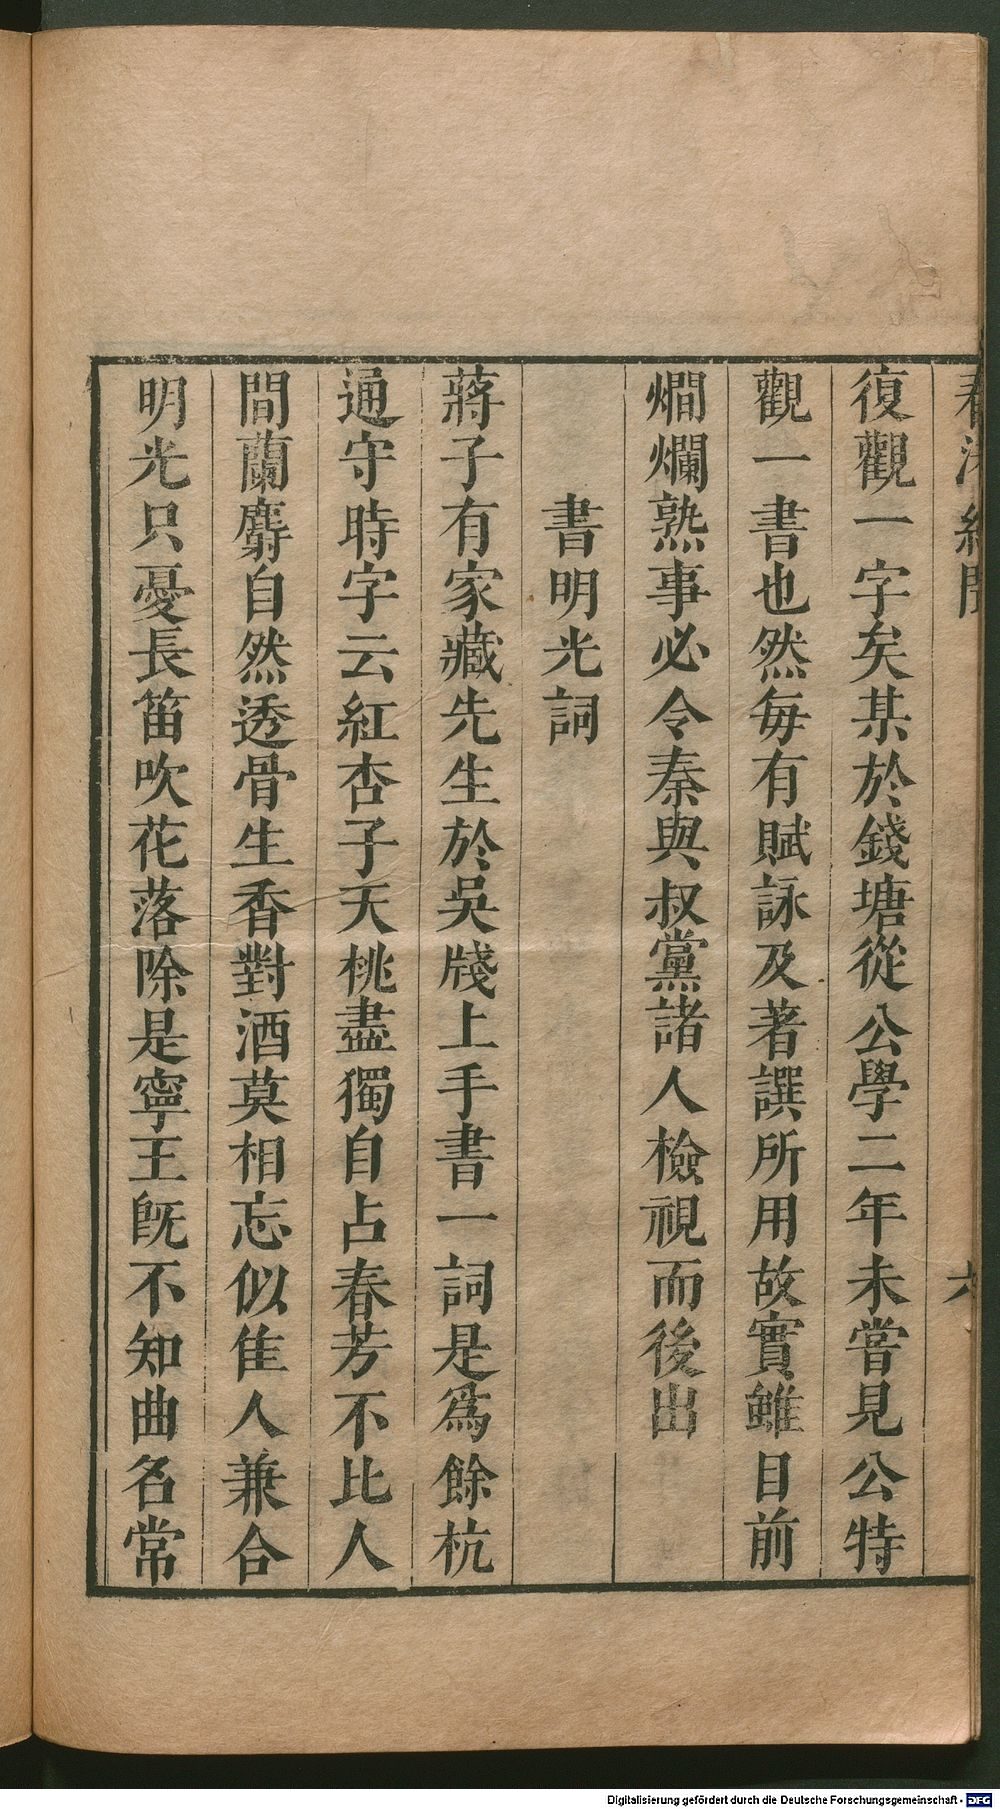 春渚紀聞 六
復觀一字矣某於錢塘從公學二年未嘗見公特
觀一書也然每有賦詠及著譔所用故實雖目前
爛爛熟事必令秦與叔黨諸人檢視而後出
書明光詞
蔣子有家藏先生於吳牋上手書一詞是爲餘杭
通守時字云紅杏子天桃盡獨自占春芳不比人
間蘭麝自然透骨生香對酒莫相忘似隹人兼合
明光只憂長笛吹花落除是寧王旣不知曲名常
Digitalisierung gefördert durch die Deutsche Forschungsgemeinschaft - DFG